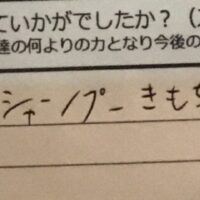 ていかがでしたか？（
達の何よりの力となり今後の
シャンプーきも